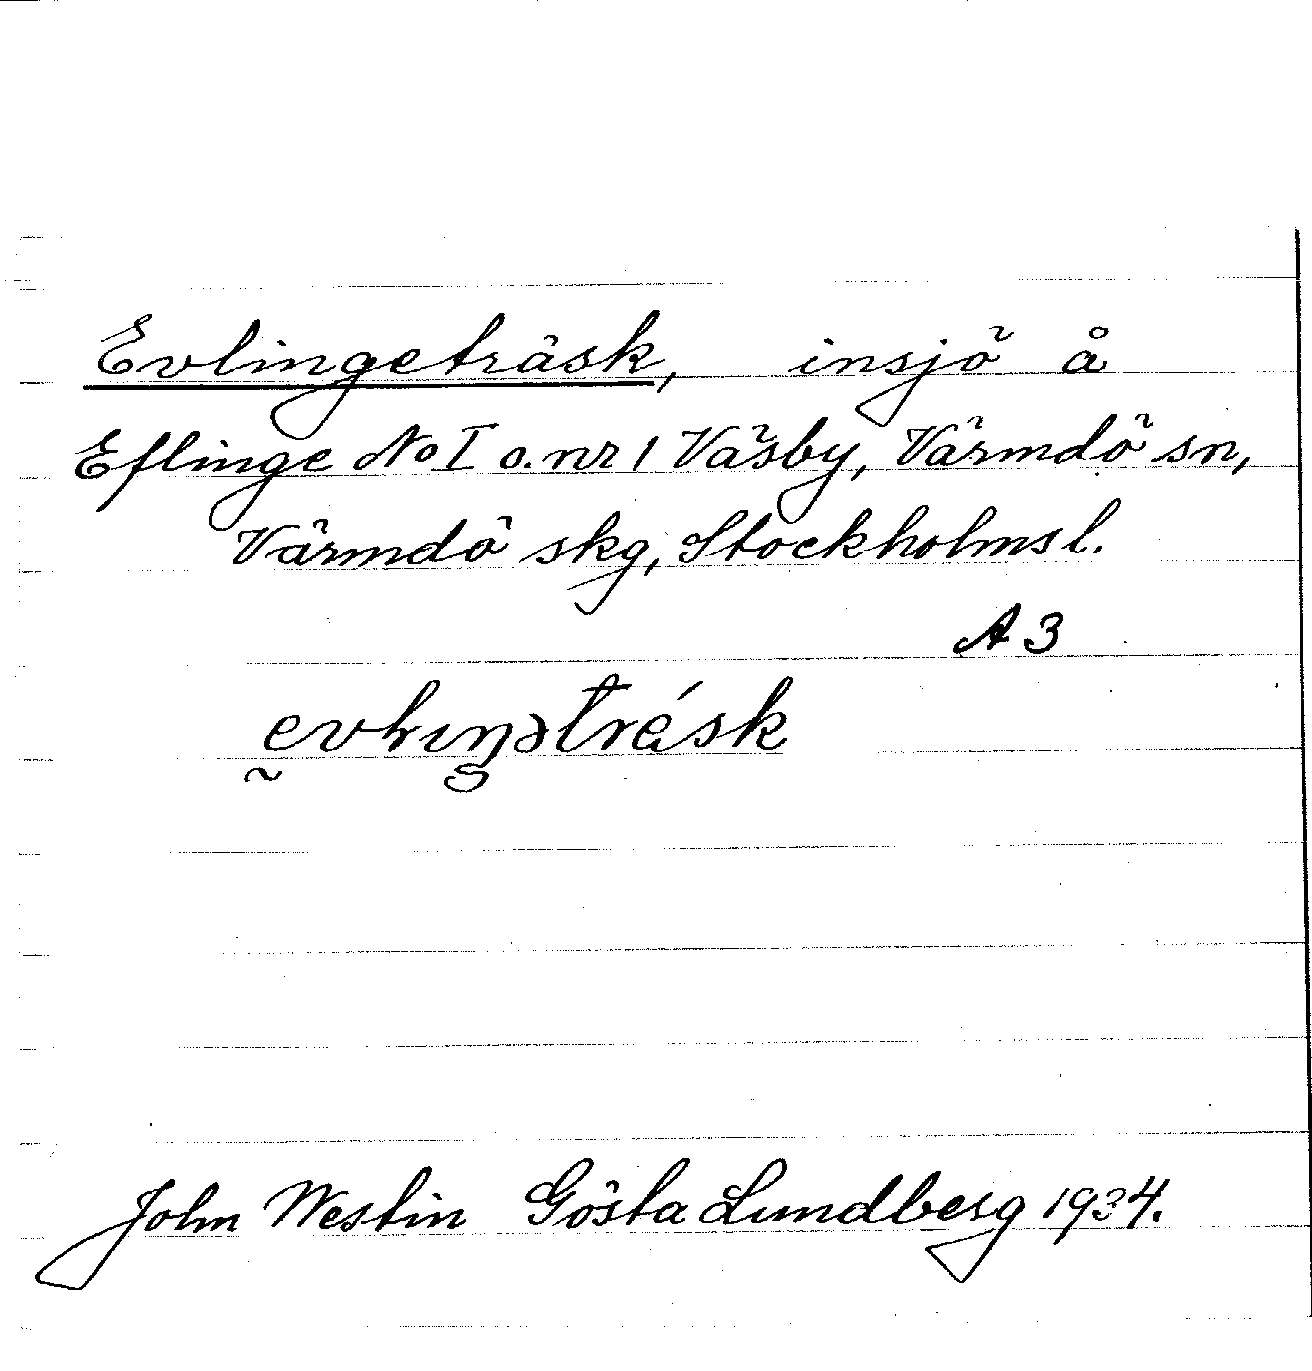 Evlingeträsk, insjö å
Eflinge No I o. nr 1 Väsby, Värmdö sn,
Värmdö skg, Stockholms l.
A 3
John Westin Gösta Lundberg 1934.